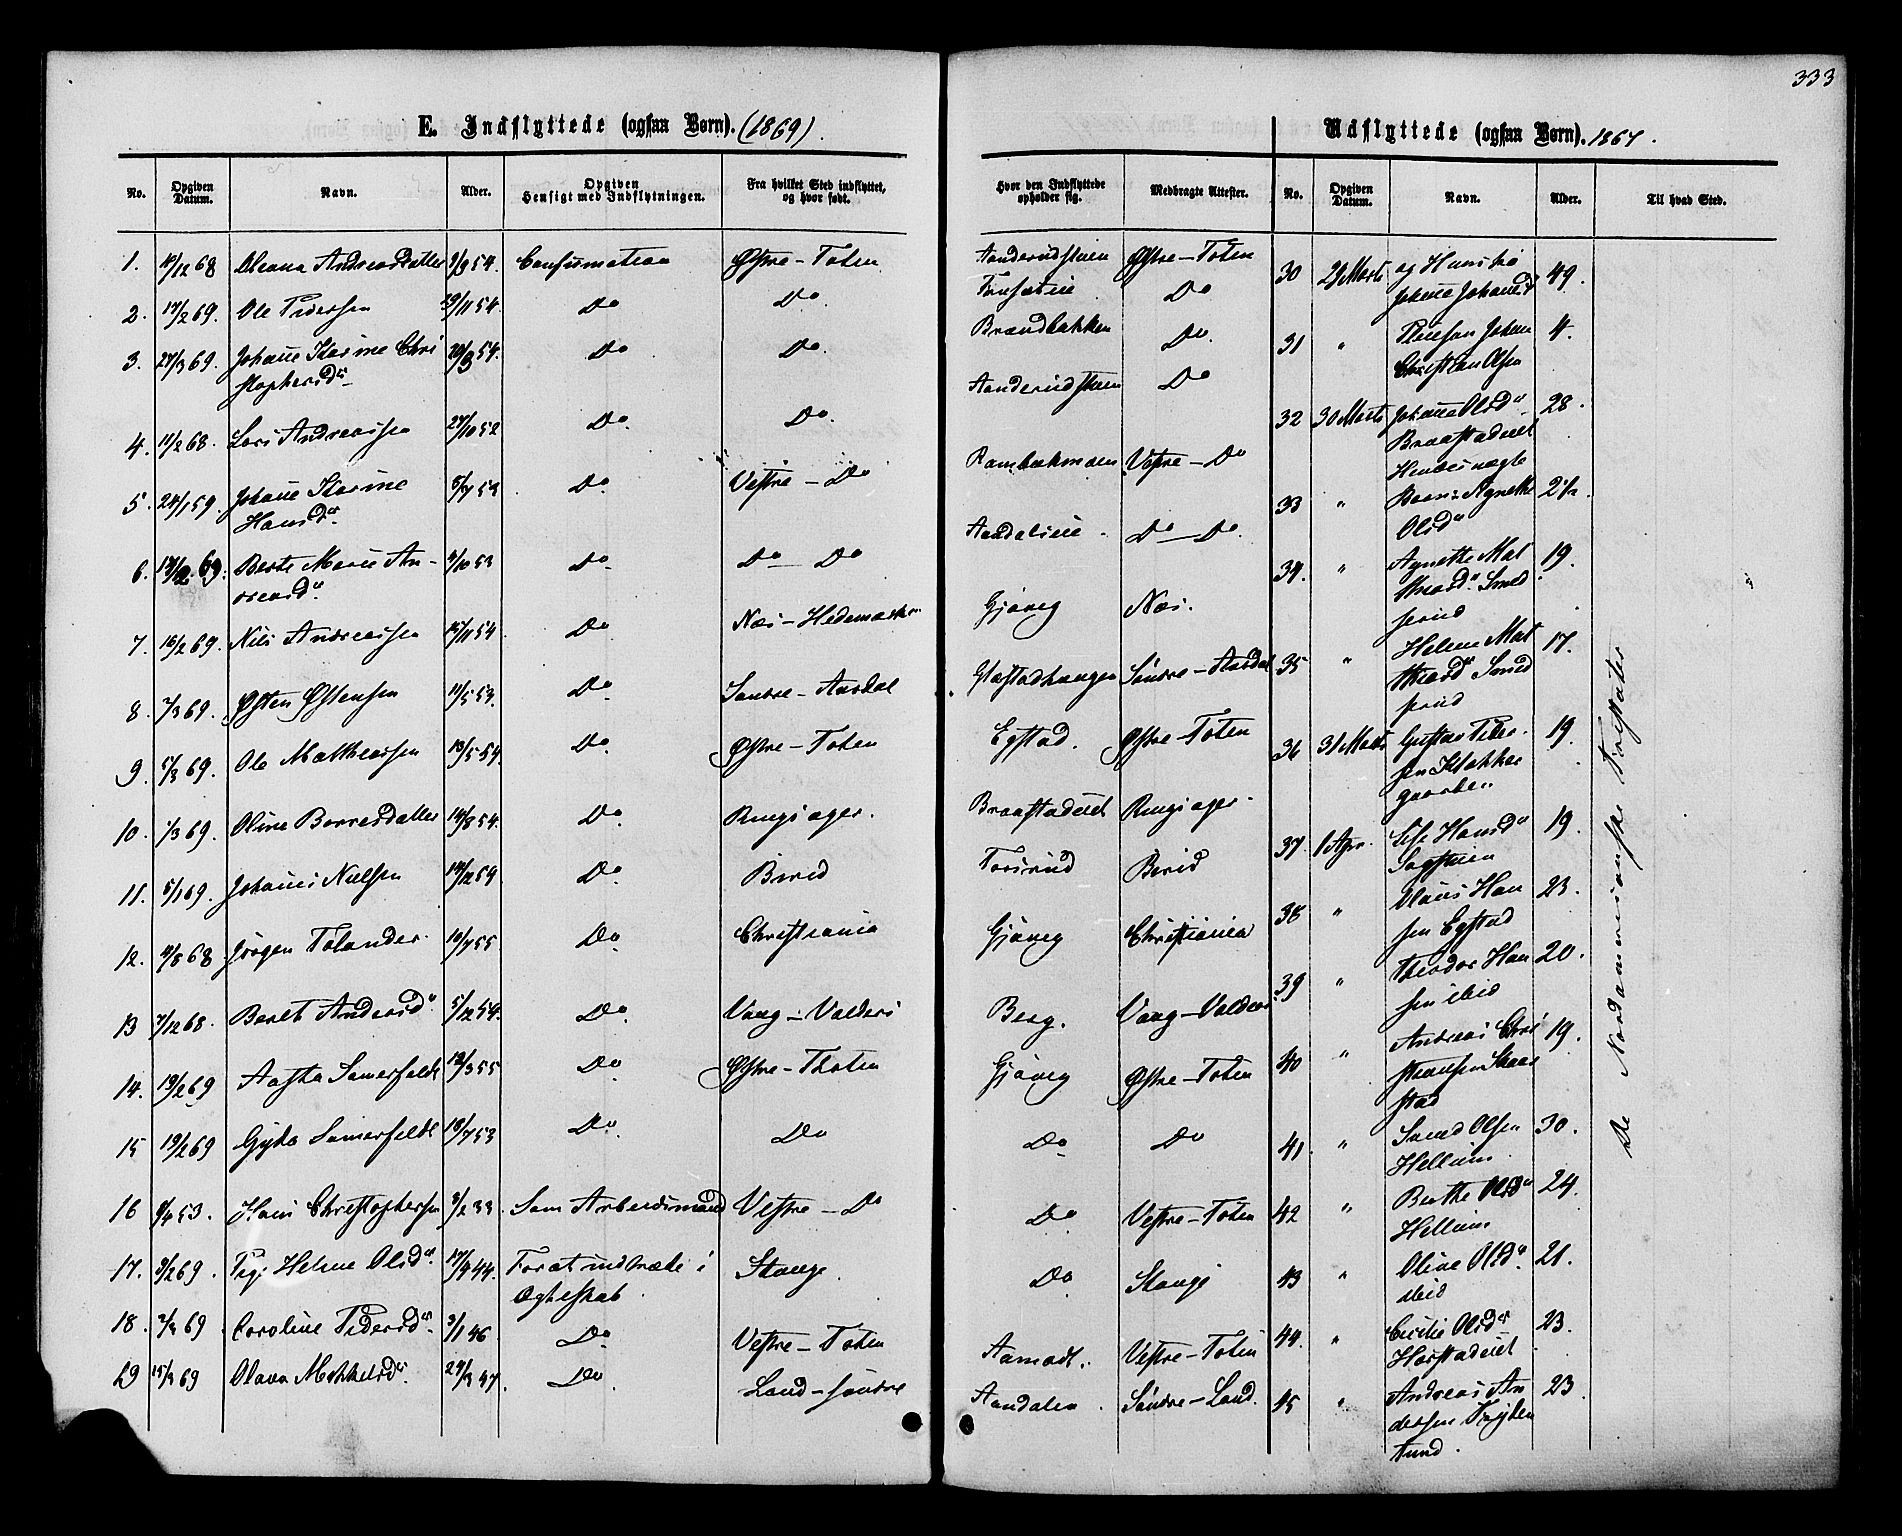 333
E. Indflyttede (ogsaa Børn). (1869).
No. Opgiven Datum. Navn. Alder. Opgiven Hensigt med Indflytningen. Fra hvilket Sted indflyttet, og hvor født.
1. /12 68 Oleana Andreasdatter 54. Confirmation Østre-Toten
2. 17/2 69. Ole Pedersen 29/11 54. Do Do
3. 27/3 69. Johane Karine Chri 54. Do Do
stophersdr
4. 11/2 68. Lars Andreassen 27/10 52 Do. Do.
5. 24/1 59. Johane Karine 5/7 53 Do Vestre-Do
Hansdr
6. 69. Berte Marie An- /10 53 Do Do-Do
dreasdr.
7. 16/2 69. Nils Andreassen 15/11 54. Do Næs-Hedemarken
8. 7/3 69. Østen Østensen 11/5 53. Do Søndre-Aurdal
9. 5/3 69. Ole Matthiassen 13/5 54. Do Østre-Toten
10. 1/3 69. Oline Borresdatter 14/8 54. Do Ringsager.
11. 5/1 69. Johanes Nielsen 14/12 54 Do. Birid
12. 68. Jørgen Tolander 10/7 55 Do Christiania
13 7/12 68. Berit Andersdr 5/12 54. Do. Vang-Valders
14. 19/2 69 Aasta Samerfeldt 12/3 55 Do Østre-Thoten
15 19/2 69 Gyda Samerfeldt 18/7 53 Do. Do
16 53. Hans Christophersen 3/2 33 Som Arbeidsmand Vestre-Do
17. 3/2 69. Pige Helene Olsdr. 17/9 44. For at indtræde i Stange.
Ægteskab.
18. 69 Caroline Pedersdr. 3/1 46 Do Vestre-Toten
19 15/3 69 Olava Mikkelsdr. 47. Do Land-søndre
Udflyttede (ogsaa Børn). 1867.
Hvor den Indflyttede opholder sig. Medbragte Attester. No. Opgiven Datum. Navn. Alder. Til hvad Sted.
Aanderudstuen Østre-Toten 30 29 Marts og Hustru 49.
Do Johane Johansd
Brændbakken Do. 31 " Johan 4.
Christian Olsen
Aanderudstuen Do 32 30 Marts Johane Olsdr 28.
Braastadeiet
Vestre-Do Hendes uægte
33 " Barn: Agnethe 2½.
Aandalseie. Do-Do. Olsdr
34. " Agnethe Mat 19.
thiasdr. Smed
Gjøvig Næs. serud
Helene Mat 17.
Glæstadhaugen Søndre-Aurdal 35 " thiasdr Smed
serud
Egstad. Østre-Toten 36 31 Marts Gustav Peder- 19.
sen Klokker
gaarden
Braastadeiet Ringsager. 37. 1 Apr. Hansdr 19.
Sagstuen
Forsrud Birid Olaus Han 23.
38 " sen Egstad
Gjøvig Christiania Theodor Han 20.
39 " sen ibid
Berg. Vang-Valders Andreas Chri 19.
Gjøvig Østre-Toten 40 " stiansen Skaar
stad
Do Do 41. " Svend Olsen 30.
Hellum
Do Vestre-Toten 42 " Berthe Olsdr 24.
Hellum
Do Stange 43 " Oline Olsdr. 21.
ibid
Aamodt. Vestre-Toten 44. " Cecilie Olsdr 23.
Harstadeiet
Aandalen. Søndre-Land. 45 " Andreas An 23.
dersen
lund.
De Nordamerikanske Fristater